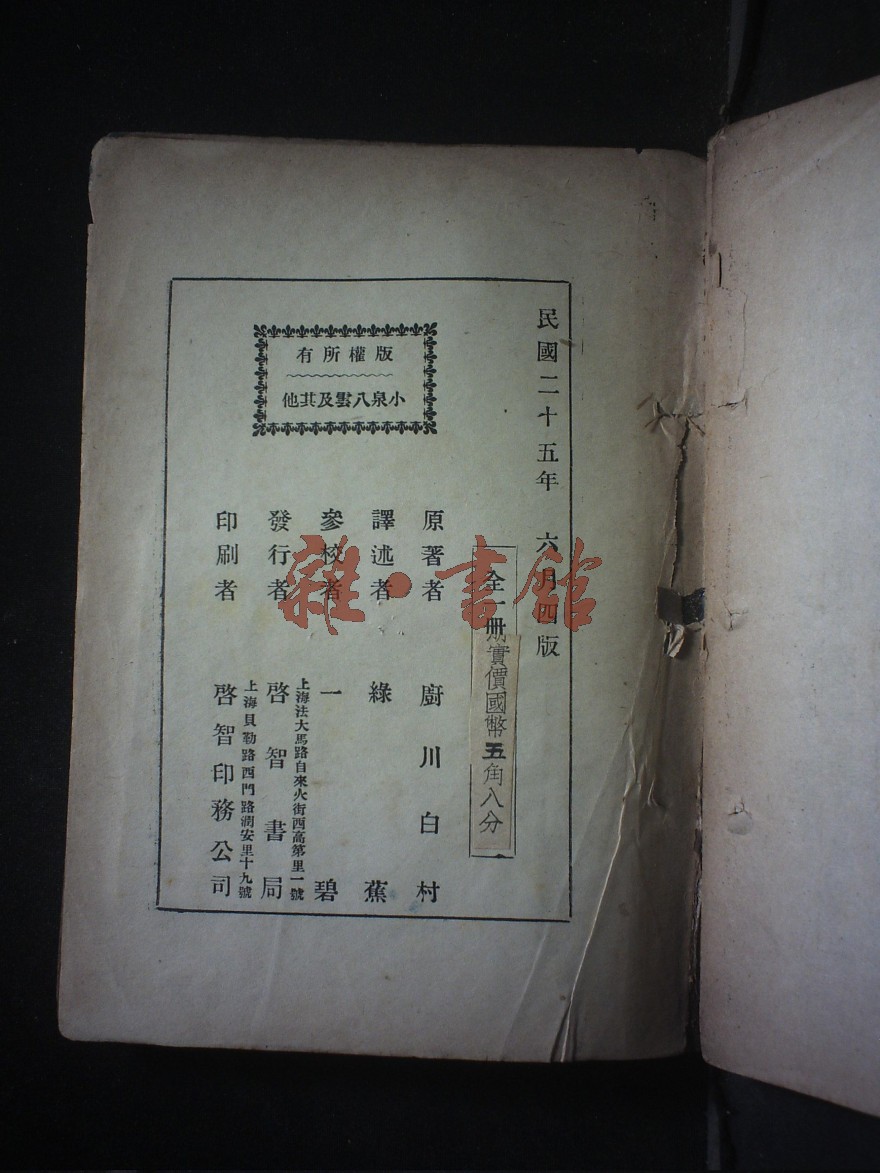 民國二十五年 六月四版
全一册實價國幣五角八分
版權所有
小泉八雲及其他
原著者 廚川白村
譯述者 綠蕉
參校者 一碧
上海法大馬路自來火街西高第里一號
發行者 啓智書局
上海貝勒路西門路潤安里十九號
印刷者 啓智印務公司
雜·書館